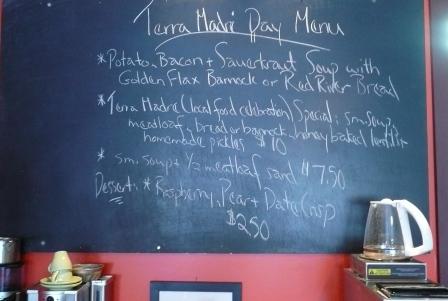 Terra Madre Day Menu
* Potato, Bacon + Sauerkraut Soup with
Golden Flax Bannock or Red River Bread
* Terra Madre (local food celebration) Special: sm. soup,
meatloaf, bread or bannock, honey baked
homemade pickles $10
* sm. soup + 1/2 meatloaf sand $7.50
Dessert: * Raspberry, Pear + Date Crisp
$2.50